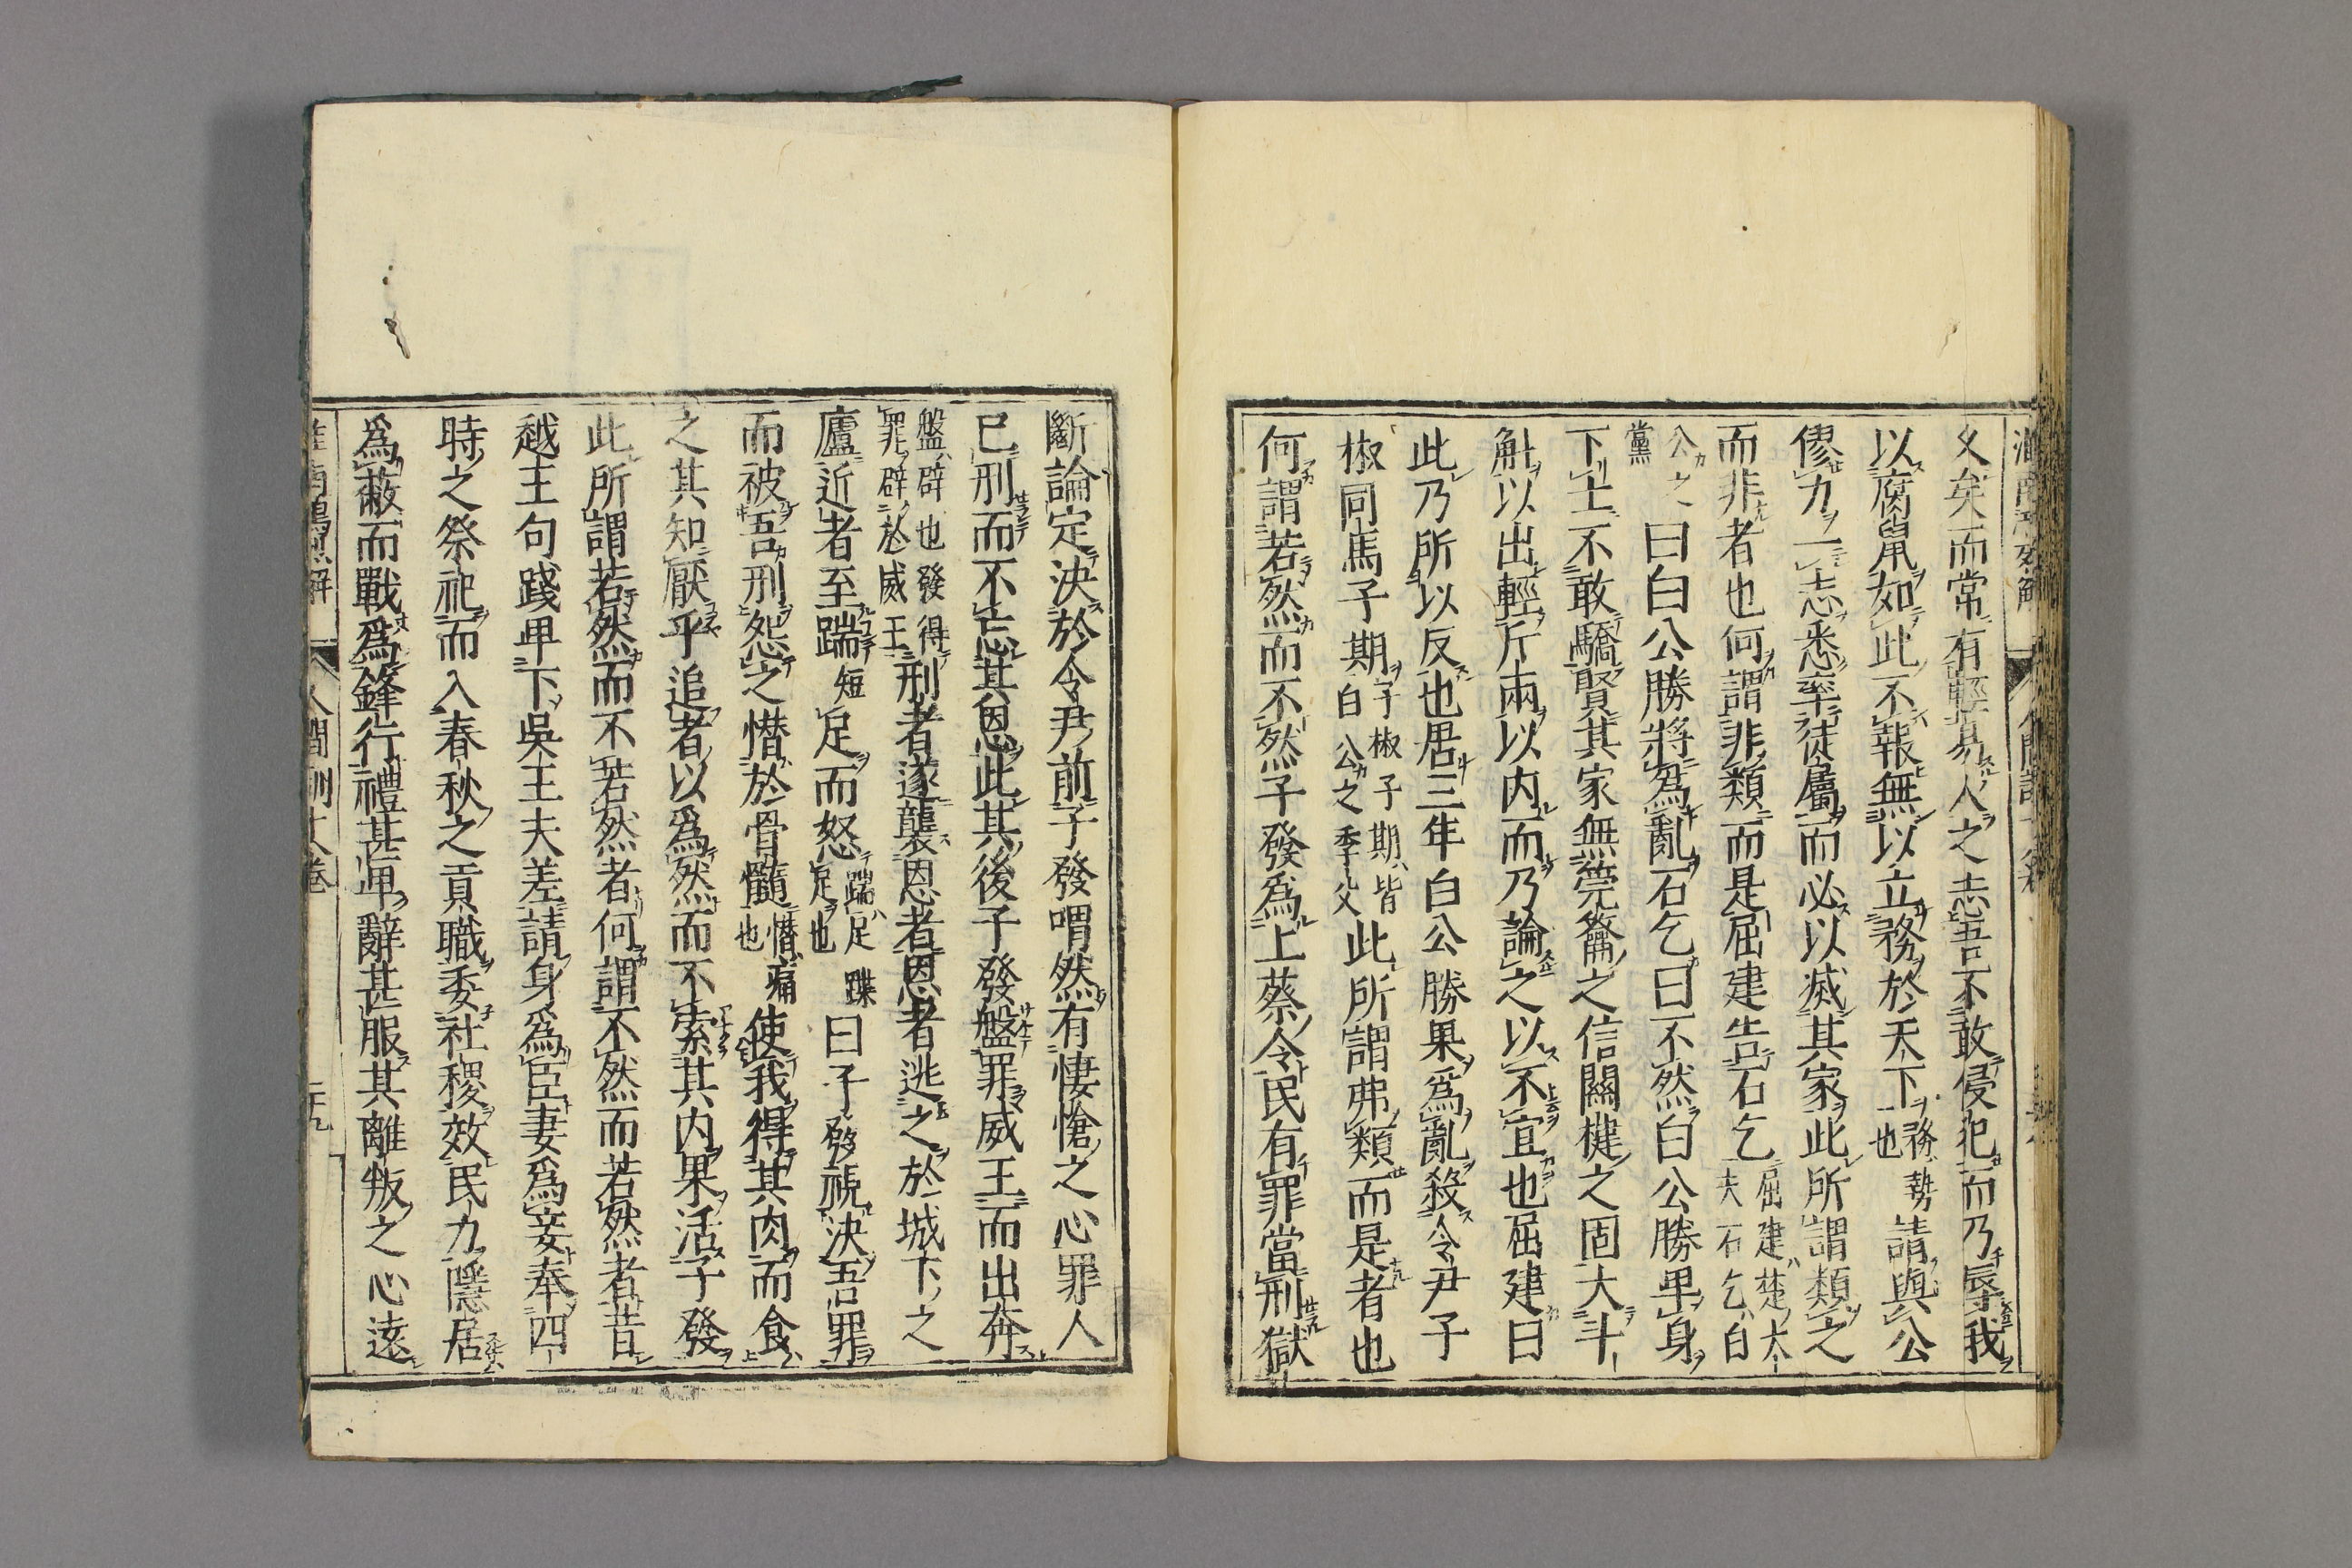 久矣而常有輕易人之志吾不敢侵犯而乃辱我
以腐鼠如此不報無以立務於天下務勢也請與公
僇力一志悉率徒屬而必以滅其家此所謂類之
而非者也何謂非類而是屈建告石乞屈建楚大夫石乞白
公之黨曰白公勝將爲亂石乞曰不然白公勝卑身
下士不敢驕賢其家無筦籥之信關楗之固大斗
斛以出輕斤兩以内而乃論之以不宜也屈建曰
此乃所以反也居三年白公勝果爲亂殺令尹子
椒司馬子期子椒子期皆白公之季父此所謂弗類而是者也
何謂若然而不然子發爲上蔡令民有罪當刑獄
斷論定決於令尹前子發喟然有悽愴之心罪人
已刑而不忘其恩此其後子發盤罪威王而出奔
盤辟也發得罪辟於威王刑者遂襲恩者恩者逃之於城下之
廬近者至踹短足而怒踹足蹀足也曰子發視決吾罪
而被吾刑怨之憯於骨髓憯痛也使我得其肉而食
之其知厭乎追者以爲然而不索其内果活子發
此所謂若然而不若然者何謂不然而若然者昔
越王句踐卑下吳王夫差請身爲臣妻爲妾奉四
時之祭祀而入春秋之貢職委社稷效民力隱居
爲蔽而戰爲鋒行禮甚卑辭甚服其離叛之心遠
人間訓十八卷